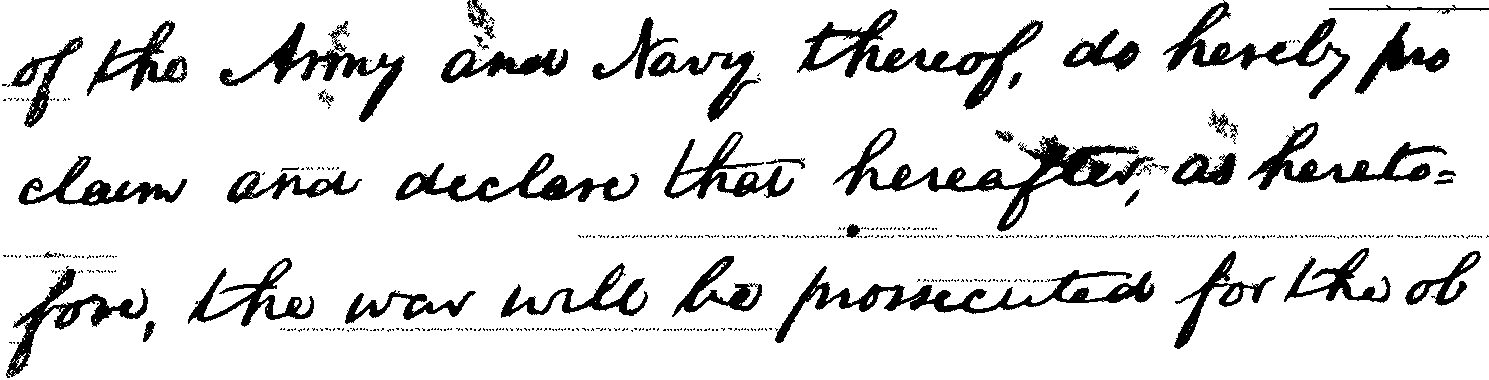 of the Army and Navy thereof, do hereby pro
claim and declare that hereafter, as hereto=
fore, the war will be prossecuted for the ob